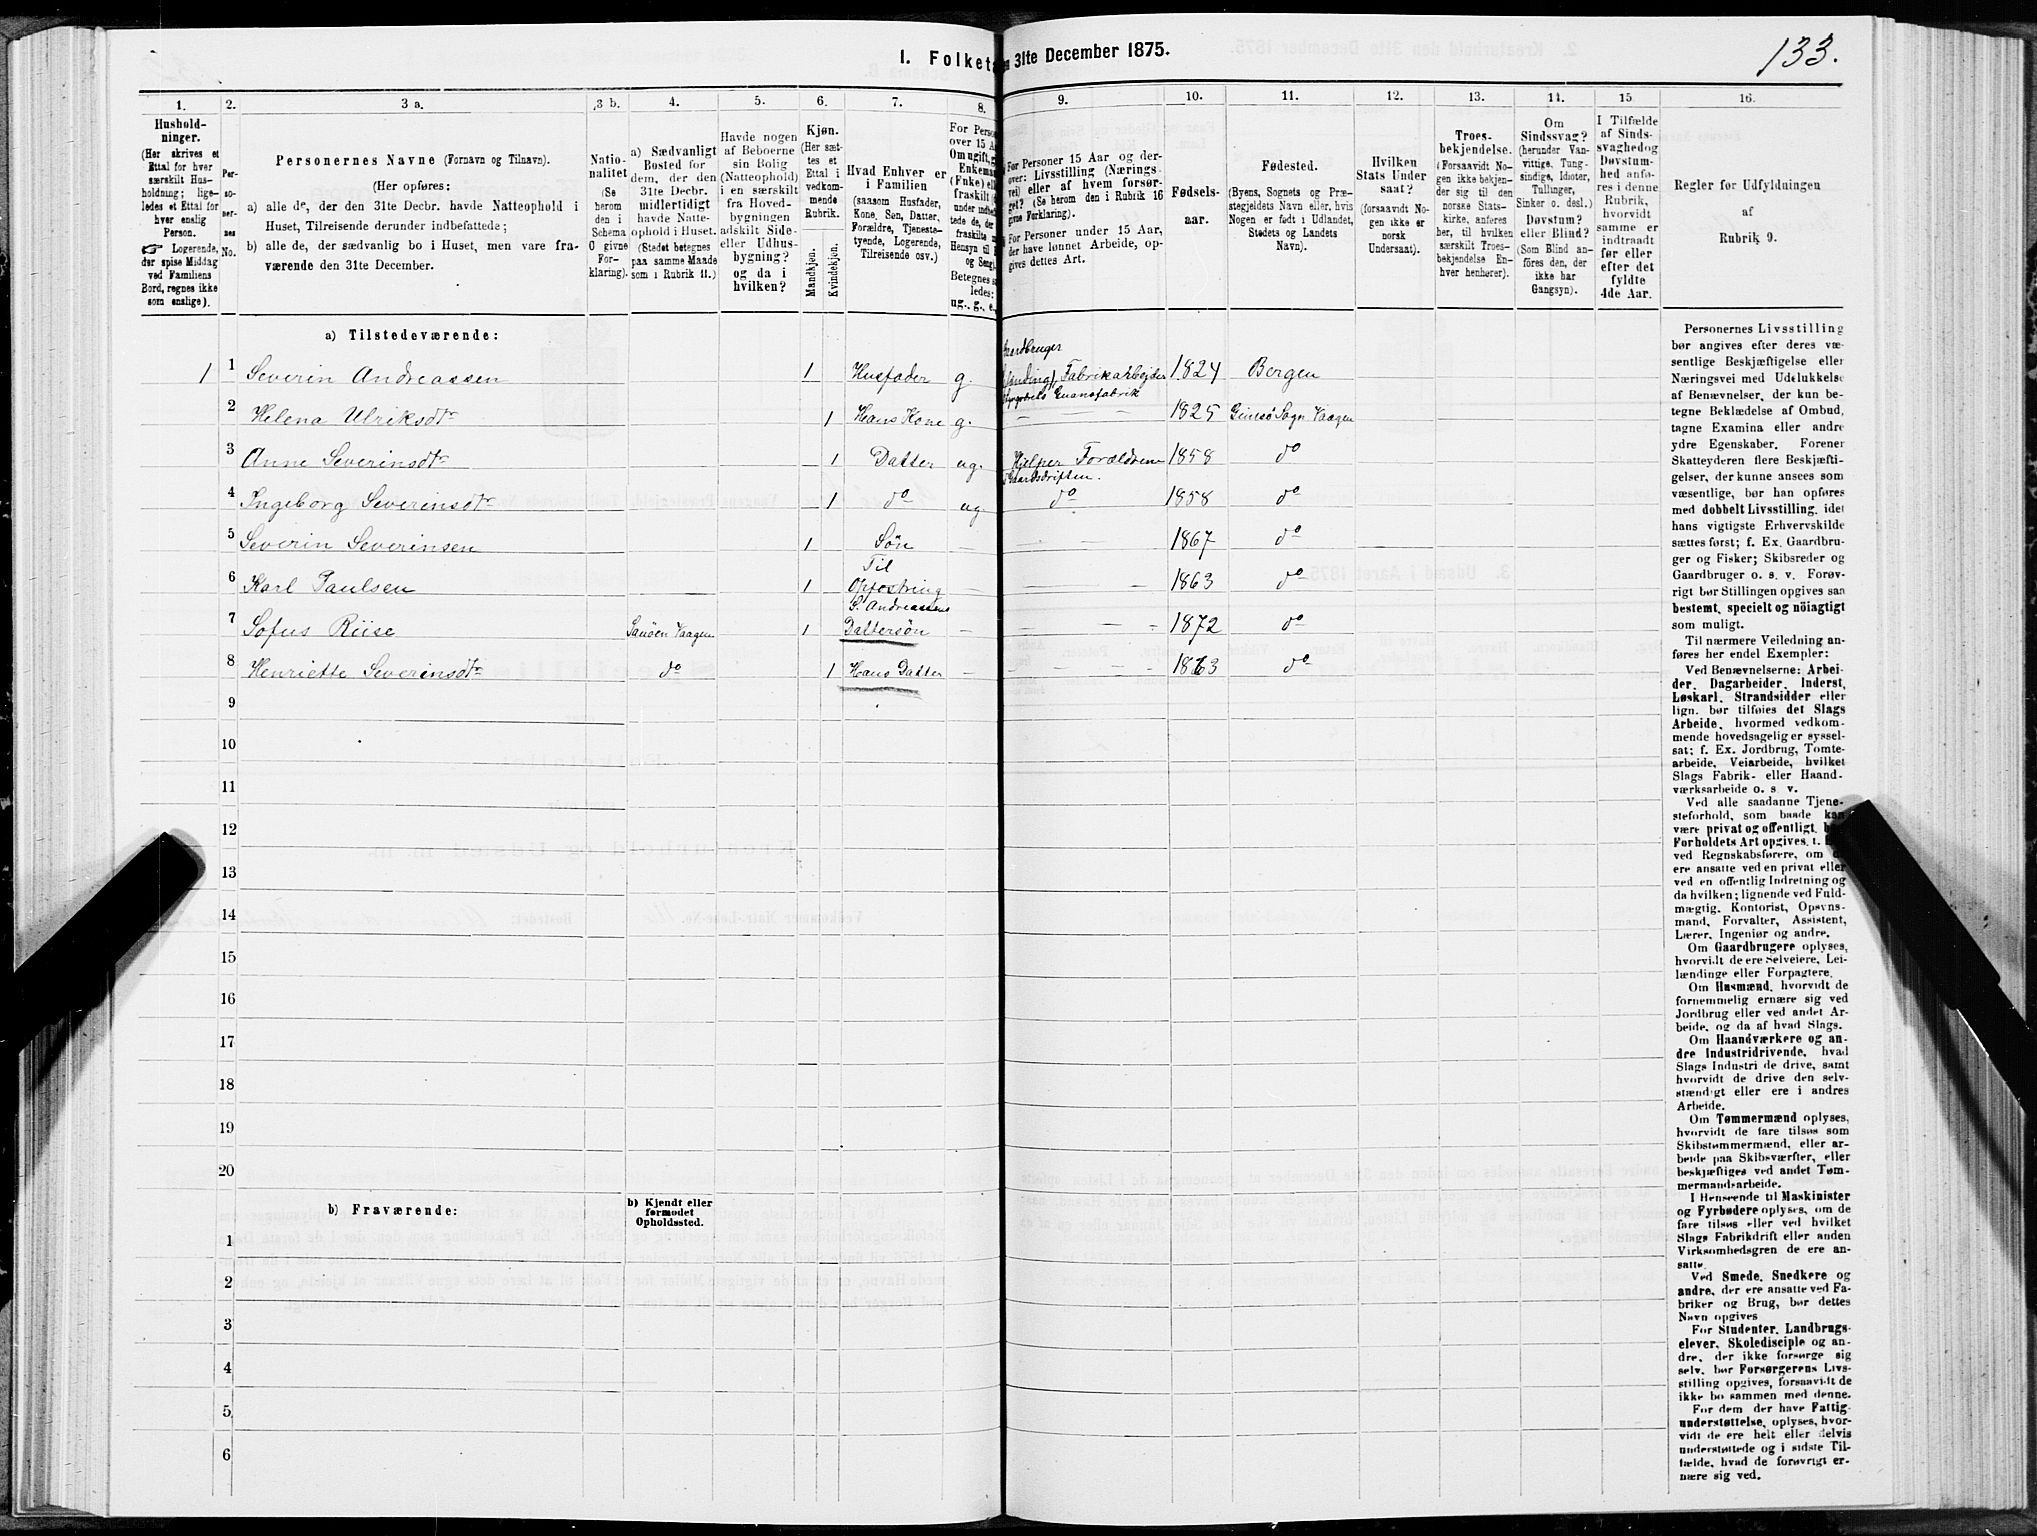 133.
I. Folket
n 31te December 1875.
1. 2. 3 a. 3 b. 4. 5. 6. 7. 8. 9. 10. 11. 12. 13. 14. 15. 16.
Hushold-
ninger.
(Her skrives et
Ettal for hver
særskilt Hus-
holdning; lige-
ledes et Ettal for
hver enslig
Person.
☞ Logerende,
der spise Middag
ved Familiens
Bord, regnes ikke
som enslige).
Per-
so-
ner-
nes
No.
Personernes Navne (Fornavn og Tilnavn).
(Her opføres:
a) alle de, der den 31te Decbr. havde Natteophold i
Huset, Tilreisende derunder indbefattede;
b) alle de, der sædvanlig bo i Huset, men vare fra-
værende den 31te December.
Natio-
nalitet
(Se
herom
den i
Schema
O givne
For-
klaring).
a) Sædvanligt
Bosted for
dem, der den
31te Decbr.
midlertidigt
havde Natte-
ophold i Huset.
(Stedet betegnes
paa samme Maade
som i Rubrik 11.)
Havde nogen
af Beboerne
sin Bolig
(Natteophold)
i en særskilt
fra Hoved-
bygningen
adskilt Side-
eller Udhus-
bygning?
og da i
hvilken?
Kjøn.
(Her sæt-
tes et
Ettal i
vedkom-
mende
Rubrik.
Mandkjøn.
Kvindekjøn.
Hvad Enhver er
i Familien
(saasom Husfader,
Kone, Søn, Datter,
Forældre, Tjeneste-
tyende, Logerende,
Tilreisende osv.)
For Perso
over 15 A
Om ugift, g
Enkeman
(Enke) ell
fraskilt
under indbe
tede de, de
fraskilte
Hensyn til
og Seng).
Betegnes s
ledes:
ug., g., e.,
For Personer 15 Aar og der-
over: Livsstilling (Nærings-
vei) eller af hvem forsør-
get? (Se herom den i Rubrik 16
givne Forklaring).
For Personer under 15 Aar,
der have lønnet Arbeide, op-
gives dettes Art.
Fødsels-
aar.
Fødested.
(Byens, Sognets og Præ-
stegjeldets Navn eller, hvis
Nogen er født i Udlandet,
Stedets og Landets
Navn).
Hvilken
Stats Under
saat?
(forsaavidt No-
gen ikke er
norsk
Undersaat).
Troes-
bekjendelse.
(Forsaavidt No-
gen ikke bekjen-
der sig til den
norske Stats-
kirke, anføres
her, til hvilken
særskilt Troes-
bekjendelse En-
hver henhører).
Om
Sindssvag?
(herunder Van-
vittige, Tung-
sindige, Idioter,
Tullinger,
Sinker o. desl.)
Døvstum?
eller Blind?
(Som Blind an-
føres den, der
ikke har
Gangsyn).
I Tilfælde
af Sinds-
svaghedog
Døvstum-
hed anfø-
res i denne
Rubrik,
hvorvidt
samme er
indtraadt
før eller
efter det
fyldte
4de Aar.
Regler for Udfyldningen
af
Rubrik 9.
a) Tilstedeværende:
Gaardbruger
1 1 Severin Andreassen 1 Husfader g. Fabrikarbejder 1824 Bergen
Guanofabrik
2 Helena Ulriksdtr 1 Hans Kone g. — 1825 Gimsö Sogn Vaagen
3 Anne Severinsdtr 1 Datter ug. Hjelper Forældrene 1858 do
i Gaardsdriften.
4 Ingeborg Severinsdtr 1 do ug. do 1858 do
5 Severin Severinsen 1 Søn — — 1867 do
Til
6 Karl Paulsen 1 Opfostring — — 1863 do
S. Andreassens
7 Sofus Riise Vaagen 1 Dattersøn — — 1872 do
8 Henriette Severinsdtr do 1 Hans Datter — — 1863 do
9
10
11
12
13
14
15
16
17
18
19
20
b) Fraværende:
b) Kjendt eller
formodet
Opholdssted.
1
2
3
4
5
6
Personernes Livsstilling
bør angives efter deres væ-
sentlige Beskjæftigelse eller
Næringsvei med Udelukkelse
af Benævnelser, der kun be-
tegne Beklædelse af Ombud,
tagne Examina eller andre
ydre Egenskaber. Forener
Skatteyderen flere Beskjæfti-
gelser, der kunne ansees som
væsentlige, bør han opføres
med dobbelt Livsstilling, idet
hans vigtigste Erhvervskilde
sættes først; f. Ex. Gaardbru-
ger og Fisker; Skibsreder og
Gaardbruger o. s. v. Forøv-
rigt bør Stillingen opgives saa
bestemt, specielt og nöiagtigt
som muligt.
Til nærmere Veiledning an-
føres her endel Exempler:
Ved Benævnelserne: Arbei-
der, Dagarbeider, Inderst,
Løskarl, Strandsidder eller
lign. bør tilføies det Slags
Arbeide, hvormed vedkom-
mende hovedsagelig er syssel-
sat; f. Ex. Jordbrug, Tomte-
arbeide, Veiarbeide, hvilket
Slags Fabrik- eller Haand-
værksarbeide o. s. v.
Ved alle saadanne Tjene-
steforhold, som baade kan
være privat og offentligt,
Forholdets Art opgives, t.
ved Regnskabsførere, om
ere ansatte ved en privat eller
ved en offentlig Indretning og
da hvilken; lignende ved Fuld-
mægtig, Kontorist, Opsyns-
mand, Forvalter, Assistent,
Lærer, Ingeniør og andre.
Om Gaardbrugere oplyses,
hvorvidt de ere Selveiere, Lei-
lændinge eller Forpagtere.
Om Husmænd, hvorvidt de
fornemmelig ernære sig ved
Jordbrug eller ved andet Ar-
beide, og da af hvad Slags.
Om Haandværkere og an-
dre Industridrivende, hvad
Slags Industri de drive, samt
hvorvidt de drive den selv-
stændigt eller ere i andres
Arbeide.
Om Tømmermænd oplyses,
hvorvidt de fare tilsøs som
Skibstømmermænd, eller ar-
beide paa Skibsværfter, eller
beskjæftiges ved andet Tøm-
mermandsarbeide.
I Henseende til Maskinister
og Fyrbødere oplyses, om de
fare tilsøs eller ved hvilket
Slags Fabrikdrift eller anden
Virksomhedsgren de ere an-
satte.
Ved Smede, Snedkere og
andre, der ere ansatte ved Fa-
briker og Brug, bør dettes
Navn opgives
For Studenter, Landbrugs-
elever, Skoledisciple og an-
dre, der ikke forsørge sig
selv, bør Forsørgerens Livs-
stilling opgives, forsaavidt de
ikke bo sammen med denne.
For dem, der have Fattig-
understøttelse, oplyses, hvor-
vidt de ere helt eller delvis
understøttede og i sidste Til-
fælde, hvad de forøvrigt er-
nære sig ved.